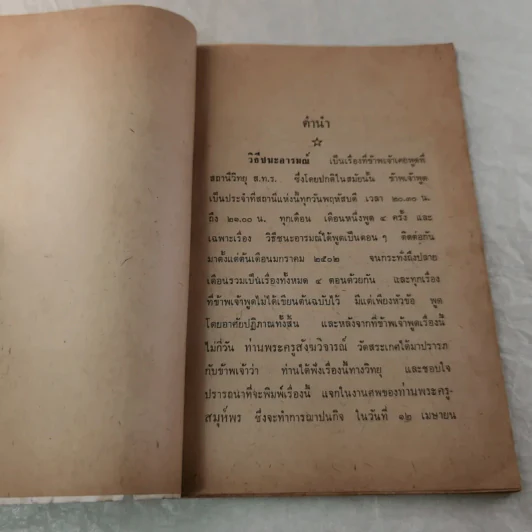 คำนำ
☆
วิธีชนะอารมณ์ เป็นเรื่องที่ข้าพเจ้าเคยพูดที่
สถานีวิทยุ ส.ท.ร. ซึ่งโดยปกติในสมัยนั้น ข้าพเจ้าพูด
เป็นประจำที่สถานีแห่งนี้ทุกวันพฤหัสบดี เวลา ๒๐.๓๐ น.
ถึง ๒๑.๐๐ น. ทุกเดือน เดือนหนึ่งพูด ๔ ครั้ง และ
เฉพาะเรื่อง วิธีชนะอารมณ์ได้พูดเป็นตอน ๆ ติดต่อกัน
มาตั้งแต่ต้นเดือนมกราคม ๒๕๐๒ จนกระทั่งถึงปลาย
เดือนรวมเป็นเรื่องทั้งหมด ๔ ตอนด้วยกัน และทุกเรื่อง
ที่ข้าพเจ้าพูดไม่ได้เขียนต้นฉบับไว้ มีแต่เพียงหัวข้อ พูด
โดยอาศัยปฏิภาณทั้งสิ้น และหลังจากที่ข้าพเจ้าพูดเรื่องนี้
ไม่กี่วัน ท่านพระครูสังฆวิจารณ์ วัดสระเกศได้มาปรารภ
กับข้าพเจ้าว่า ท่านได้ฟังเรื่องนี้ทางวิทยุ และชอบใจ
ปรารถนาที่จะพิมพ์เรื่องนี้ แจกในงานศพของท่านพระครู-
สมุห์พร ซึ่งจะทำการฌาปนกิจ ในวันที่ ๑๒ เมษายน